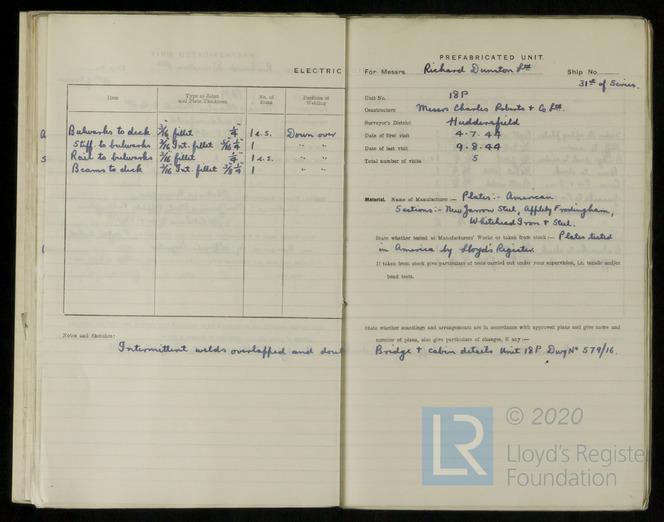 ELECTRIC
Item
Type of Joint and Plate Thickness
No. of Runs
Position of Welding
Bulwarks to deck 3/16 fillet 1/4" 1 e.s. Down over
Stiff. to bulwarks 3/16 Int. fillet 1 " "
Rail to bulwarks 3/16 fillet 1/4" 1 e.s. " "
Beams to deck 3/16 Int. fillet 1 " "
Notes and Sketches:
Intermittent welds overlapped and dou
PREFABRICATED UNIT.
For Messrs. Richard Dunston Ltd Ship No.
31st of Series.
Unit No. 18P
Constructors Messrs Charles Roberts & Co Ltd.
Surveyor's District Huddersfield
Date of first visit 4-7-44
Date of last visit 9-8-44
Total number of visits 5
Material. Name of Manufacturer :— Plates:- American
Sections:- New Jarrow Steel, Appleby Frodingham,
Whitehead Iron & Steel.
State whether tested at Manufacturers' Works or taken from stock :— Plates tested
in America by Lloyd's Register.
If taken from stock give particulars of tests carried out under your supervision, i.e. tensile and/or
bend tests.
State whether scantlings and arrangements are in accordance with approved plans and give name and
number of plans, also give particulars of changes, if any :—
Bridge & cabin details Unit 18P Dwg No 579/16.
© 2020
LR
Lloyd's Register
Foundation